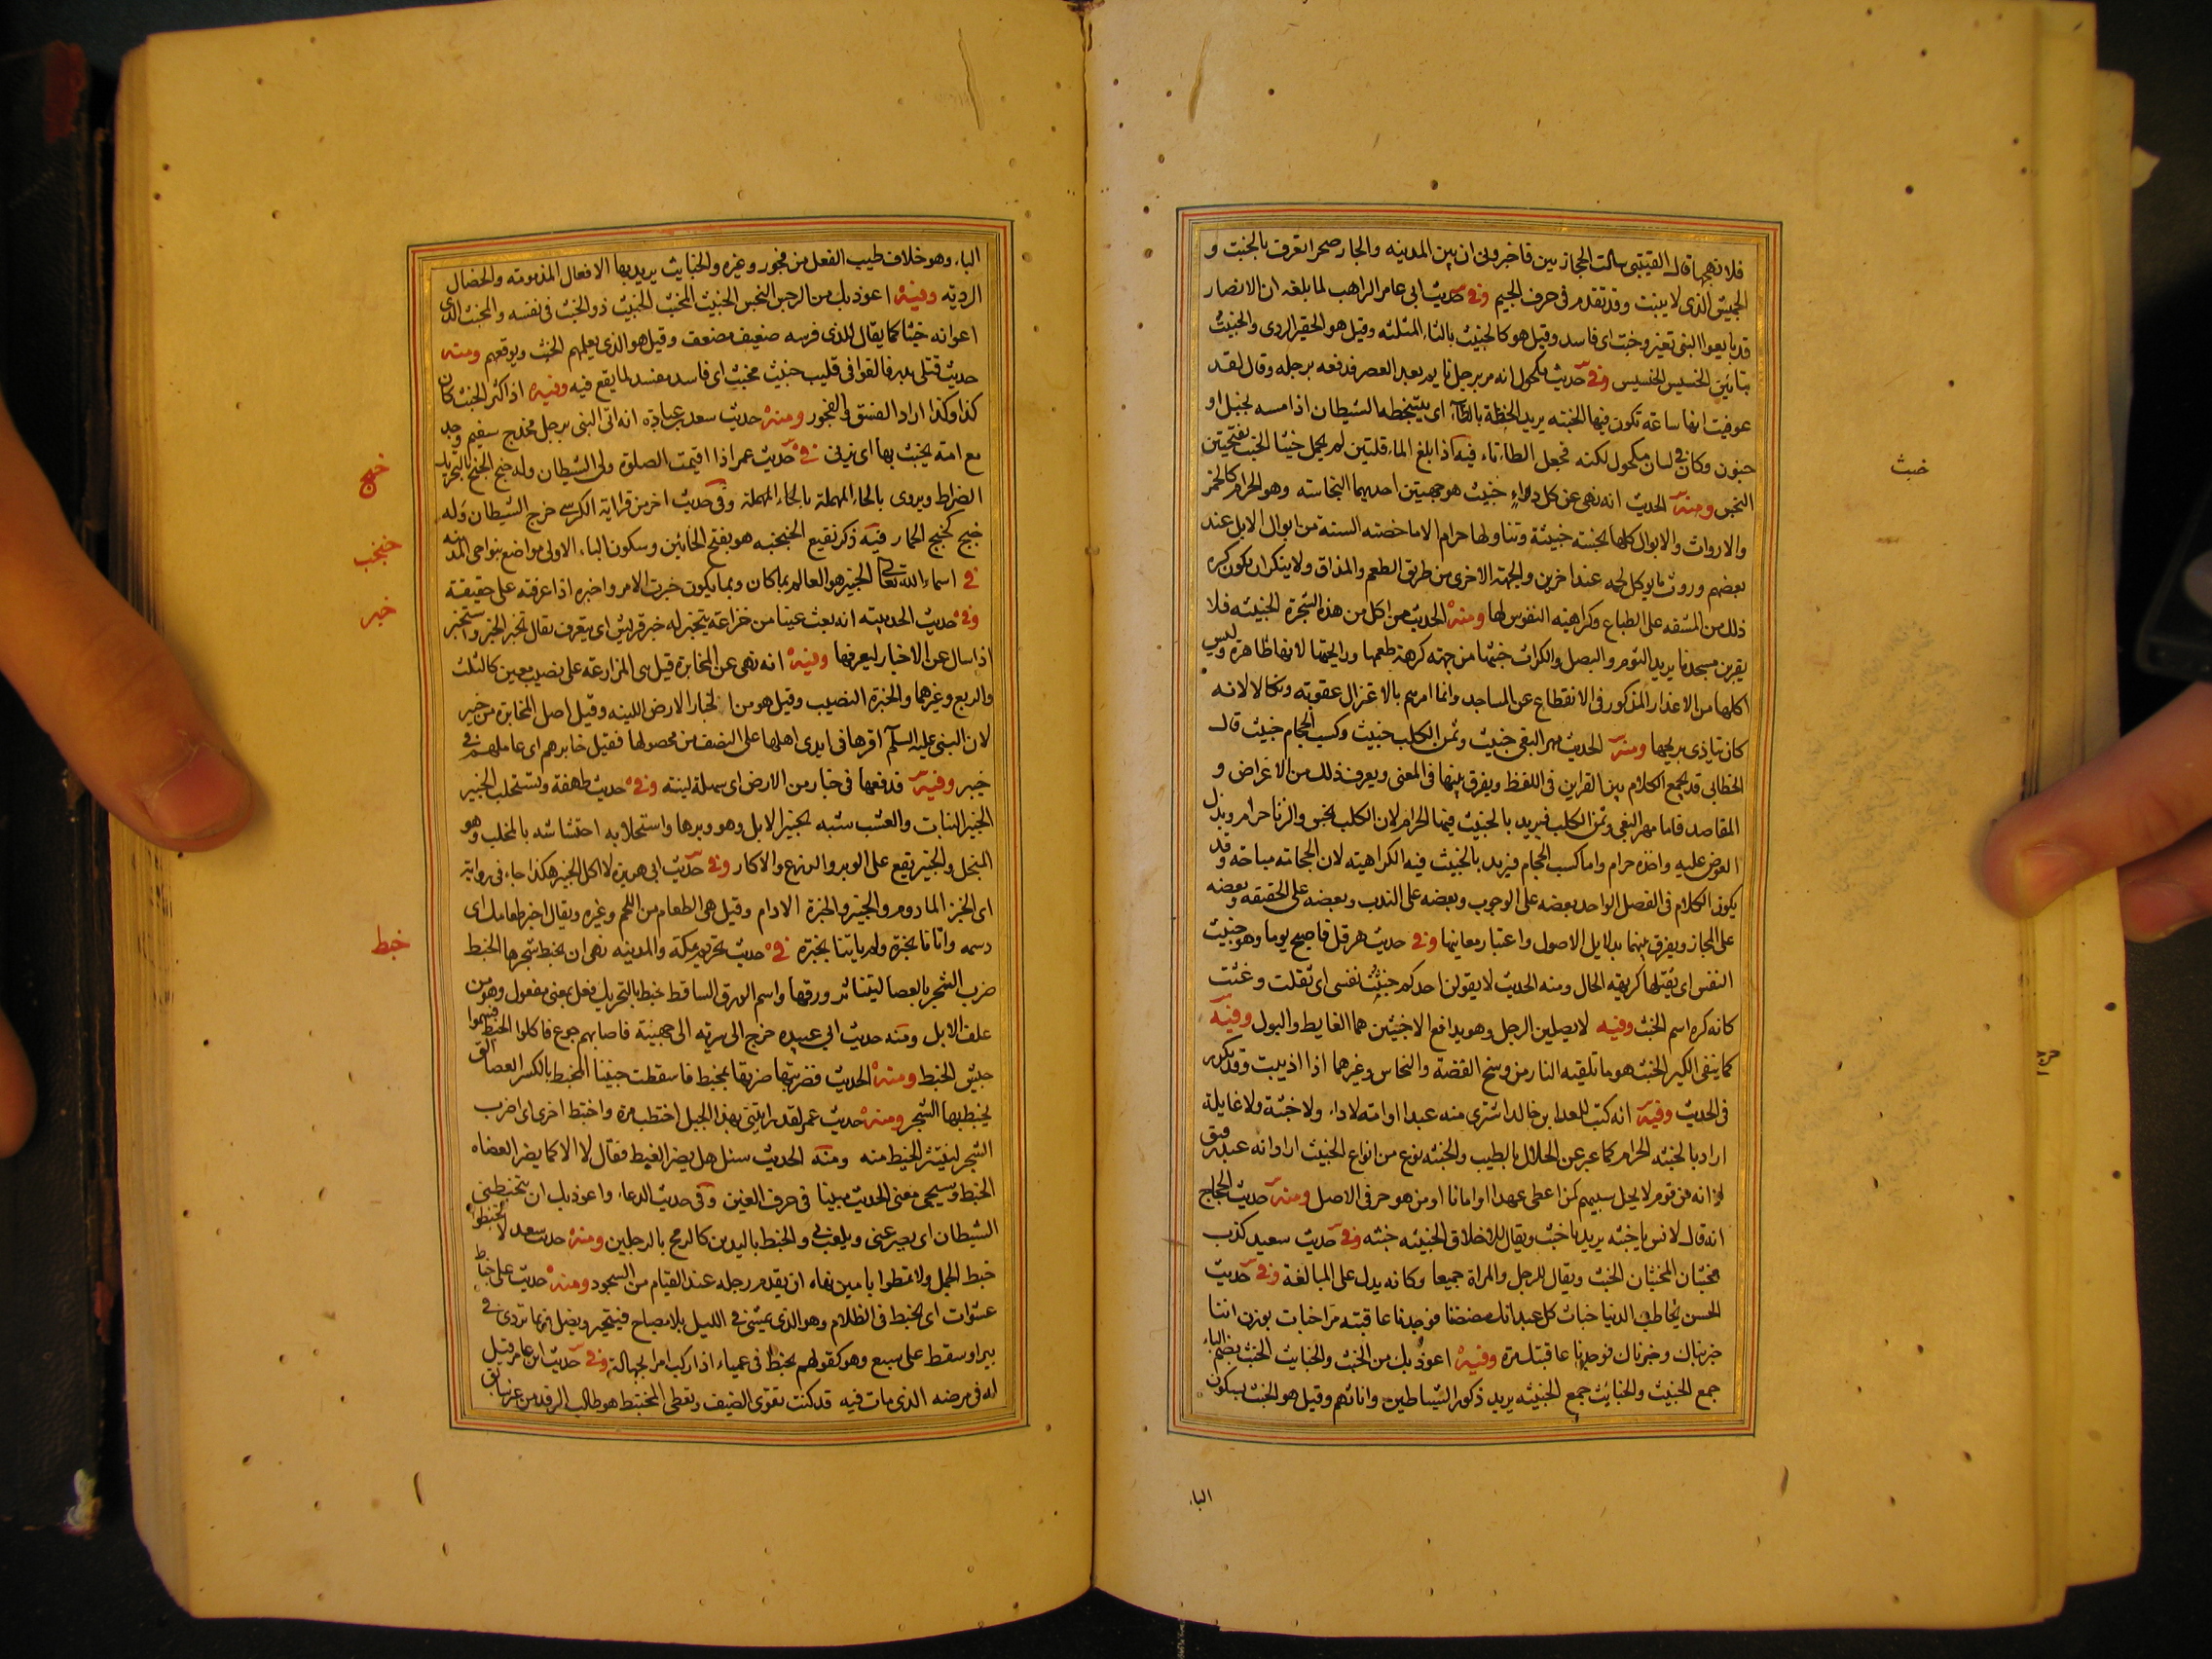 فلا تهجها قال القتيبى سالت الحجازيين فاخبرونى ان بين المدينه والجار صحرا تعرف بالخبت و
الجميش الذى لا ينبت وقد تقدم فى حرف الجيم وفى حديث ابى عامر الراهب لما بلغه ان الانصار
قد بايعوا النبى تغير وخبت اى فاسد وقيل هو كالخبيث بالثاء المثلثه وقيل هو الحقير الردى والخبيت
بتائين الخسيس الخسيس وفى حديث مكحول انه مر برجل نايم بعد العصر فدفعه برجله وقال لقد
عوفيت انها ساعة تكون فيها الخبته يريد الخبطة بالطاء اى يتخبطه الشيطان اذا مسه لخبل او
جنون وكان فى لسان مكحول لكنه فجعل الطاء تاء فيه اذا بلغ الماء قلتين لم يحمل خبثا الخبث بفتحتين
خبث
النجس ومنه الحديث انه نهى عن كل دواء خبيث هو جهتين احديهما النجاسته وهو الحرام كالخمر
والارواث والابوال كلها نجسته خبيثة وتناولها حرام الا ما خصته السنة من ابوال الابل عند
بعضهم وروث ما يوكل لحمه عند اخرين والجهة الاخرى من طريق الطعم والمذاق ولا ينكر ان يكون كره
ذلك من المشقه على الطباع وكراهيته النفوس لها ومنه الحديث من اكل من هذه الشجرة الخبيثه فلا
يقربن مسجدنا يريد الثوم والبصل والكراث خبثها من جهته كرهة طعمها ورايحتها لانها طاهرة وليس
اكلها من الاعذار المذكور فى الانقطاع عن المساجد وانما امرهم بالاعتزال عقوبته ونكالا لانه
كان يتاذى بريحها ومنه الحديث مهر البغى خبيث وثمن الكلب خبيث وكسب الحجام خبيث قال
الخطابى قد يجمع الكلام بين القراين فى اللفظ ويفرق بينها فى المعنى ويعرف ذلك من الاغراض و
المقاصد فاما مهر البغى وثمن الكلب فيريد بالخبيث فيها الحرام لان الكلب نجس والزنا حرام وبذل
العوض عليه واخذه حرام واما كسب الحجام فيريد بالخبيث فيه الكراهيته لان الحجامته مباحة وقد
يكون الكلام فى الفصل الواحد بعضه على الوجوب وبعضه على الندب وبعضه على الحقيقه وبعضه
على المجاز ويفرق بينهما بدلايل الاصول واعتبار معانيها وفى حديث هرقل فاصبح يوما وهو خبيث
النفس اى ثقيلها كريهة الحال ومنه الحديث لا يقولن احدكم خبثت نفسى اى ثقلت وغثت
كانه كره اسم الخبث وفيه لا يصلين الرجل وهو يدافع الاخبثين هما الغايط والبول وفيه
كما ينفى الكير الخبث هو ما تلقيته النار من وسخ الفضة والنحاس وغيرهما اذا اذيبت وقد تكرر
فى الحديث وفيه انه كتب للعدا بن خالد اشترى منه عبدا او امته لا داء ولا خبثة ولا غايلة
اراد بالخبثه الحرام كما عبر عن الحلال بالطيب والخبثه نوع من انواع الخبيث اراد انه عبد رقيق
لا انه من قوم لا يحل سبيهم كمن اعطى عهدا او امانا او من هو حر فى الاصل ومنه حديث الحجاج
انه قال لانس يا خبثه يريد يا خبث ويقال للاخلاق الخبيثه خبثه وفى حديث سعيد كذب
مخبثان المخبثان الخبث ويقال للرجل والمراة جميعا وكانه يدل على المبالغة وفى حديث
الحسن يخاطب الدنيا خباث كل عيدانك مضضنا فوجدنا عاقبته مرا خباث بوزن
جربناك وخبرناك فوجدنا عاقبتك مرة وفيه اعوذ بك من الخبث والخبايث الخبث بضم الباء
جمع الخبيث والخبايث جمع الخبيثه يريد ذكور الشياطين واناثهم وقيل هو الخبث بسكون
الباء
الباء وهو خلاف طيب الفعل من فجور وغيره والخبايث يريد بها الافعال المذمومته والخصال
الرديه وفيه اعوذ بك من الرجس النجس الخبيث المخبث الخبيث ذو الخبث فى نفسه والمخبث الذى
اعوانه خبثا كما يقال للذى فرسه ضعيف مضعف وقيل هو الذى يعلمهم الخبث ويوقعهم ومنه
حديث قتلى بدر فالقوا فى قليب خبيث مخبث اى فاسد مفسد لما يقع فيه وفيه اذا كثر الخبث كان
كذا وكذا اراد الفسق والفجور ومنه حديث سعد بن عبادة انه اتى النبى برجل مخدج سقيم وجد
مع امته يخبث بها اى يزنى فى حديث عمر اذا اقيمت الصلوة ولى الشيطان وله خبج الخبج بالتحريك
خبج
الضراط ويروى بالحاء المهملة بالحاء المهملة وفى حديث اخر من قرا اية الكرسى خرج الشيطان وله
خبج كخبج الحمار فيه ذكر بقيع الخبجبه هو بفتح الخائين وسكون الباء الاولى مواضع بنواحى المدينه
خبخب
فى اسماء الله تعالى الخبير هو العالم بما كان وبما يكون خبرت الامر واخبره اذا عرفته على حقيقته
خبر
وفى حديث الحديبيته انه بعث عينا من خزاعة يتخبر له خبر قريش اى يتعرف يقال تخبر الخبر واستخبر
اذا سال عن الاخبار ليعرفها وفيه انه نهى عن المخابرة قيل هى المزارعته على نصيب معين كالثلث
والربع وغيرهما والخبرة النصيب وقيل هو من الخبار الارض اللينه وقيل اصل المخابرة من خيبر
لان النبى عليه السلم اقرها فى ايدى اهلها على النصف من محصولها فقيل خابرهم اى عاملهم فى
خيبر وفيه فدفعنا فى خبار من الارض اى سهلة لينته وفى حديث طهفة ونستخلب الخبير
الخبير النبات والعشب شبه بخبير الابل وهو وبرها واستخلابه احتشاشه بالمخلب وهو
المنجل والخبير يقع على الوبر والزرع والاكار وفى حديث ابى هريرة لا اكل الخبير هكذا جاء فى رواية
اى الخبز المادوم والخبير والخبزة الادام وقيل هى الطعام من اللحم وغيره ويقال اخبر طعامك اى
دسمه واتانا بخبزة ولم ياتنا بخبزة فى حديث تحريم مكة والمدينه نهى ان يخبط شجرها الخبط
خبط
ضرب الشجر بالعصا ليتناثر ورقها واسم الورق الساقط خبط بالتحريك فعل بمعنى مفعول وهو من
علف الابل ومنه حديث ابى عبيده خرج الى سريه الى جهينة فاصابهم جوع فاكلوا الخبط فسموا
جيش الخبط ومنه الحديث فضربتها ضرتها بمخبط فاسقطت جنينا المخبط بالكسر العصا التى
يخبط بها الشجر ومنه حديث عمر لقد رايتنى بهذا الجبل احتطب مرة واختبط اخرى اى اضرب
الشجر لينتثر الخبط منه ومنه الحديث سئل هل يضر الغبط فقال لا الا كما يضر العضاه
الخبط وسيجى معنى الحديث مبينا فى حرف الغين وفى حديث الدعاء واعوذ بك ان يتخبطنى
الشيطان اى يصرعنى ويلعب بى والخبط باليدين كالرمح بالرجلين ومنه حديث سعد لا تخبطوا
خبط الجمل ولا تمطوا بامين نهاه ان يقدم رجله عند القيام من السجود ومنه حديث على خباط
عشوات اى يخبط فى الظلام وهو الذى يمشى فى الليل بلا مصباح فيتحير ويضل فربما تردى فى
بير او سقط على سبع وهو كقولهم يخبط فى عمياء اذا ركب امر الجهالة وفى حديث ابن عامر قيل
له فى مرضه الذى مات فيه قد كنت تقوى الضيف وتعطى المختبط هو طالب الرفد من غير سابق